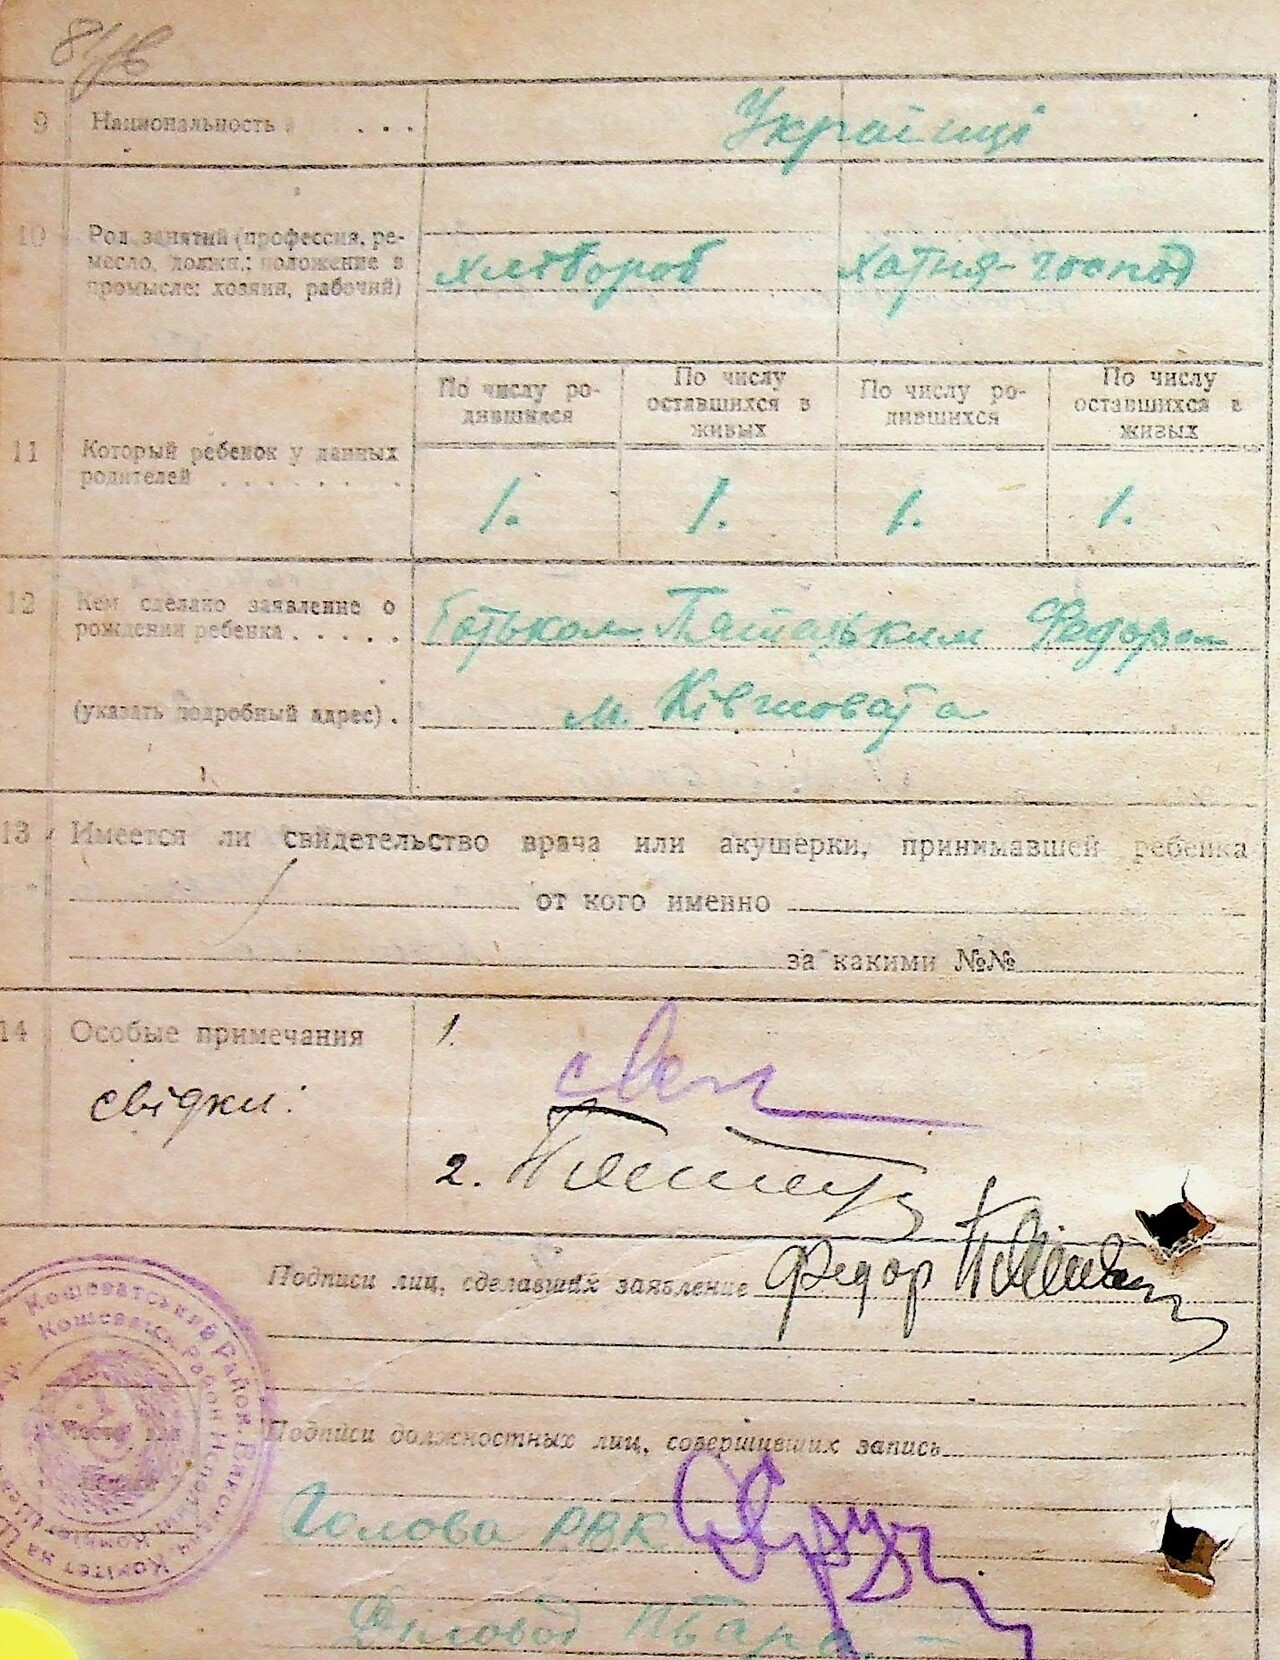 9 Национальность . . .
Українці
10 Род занятий (профессия, ре-
месло, должн.; положение в
промысле: хозяин, рабочий)
хлебороб хатня-господ
11 Который ребенок у данных
родителей . . . . . . . .
По числу ро-
дившихся
По числу
оставшихся в
живых
По числу ро-
дившихся
По числу
оставшихся в
живых
1. 1. 1. 1.
12 Кем сделано заявление о
рождении ребенка . . . . .
Батьком Федором
(указать подробный адрес) .
м. Ківшовата
13 Имеется ли свидетельство врача или акушерки, принимавшей ребенка
от кого именно
за какими №№
14 Особые примечания
свідки:
1.
2.
Подписи лиц, сделавших заявление Федор
Подписи должностных лиц, совершивших запись
Голова РВК
Діловод